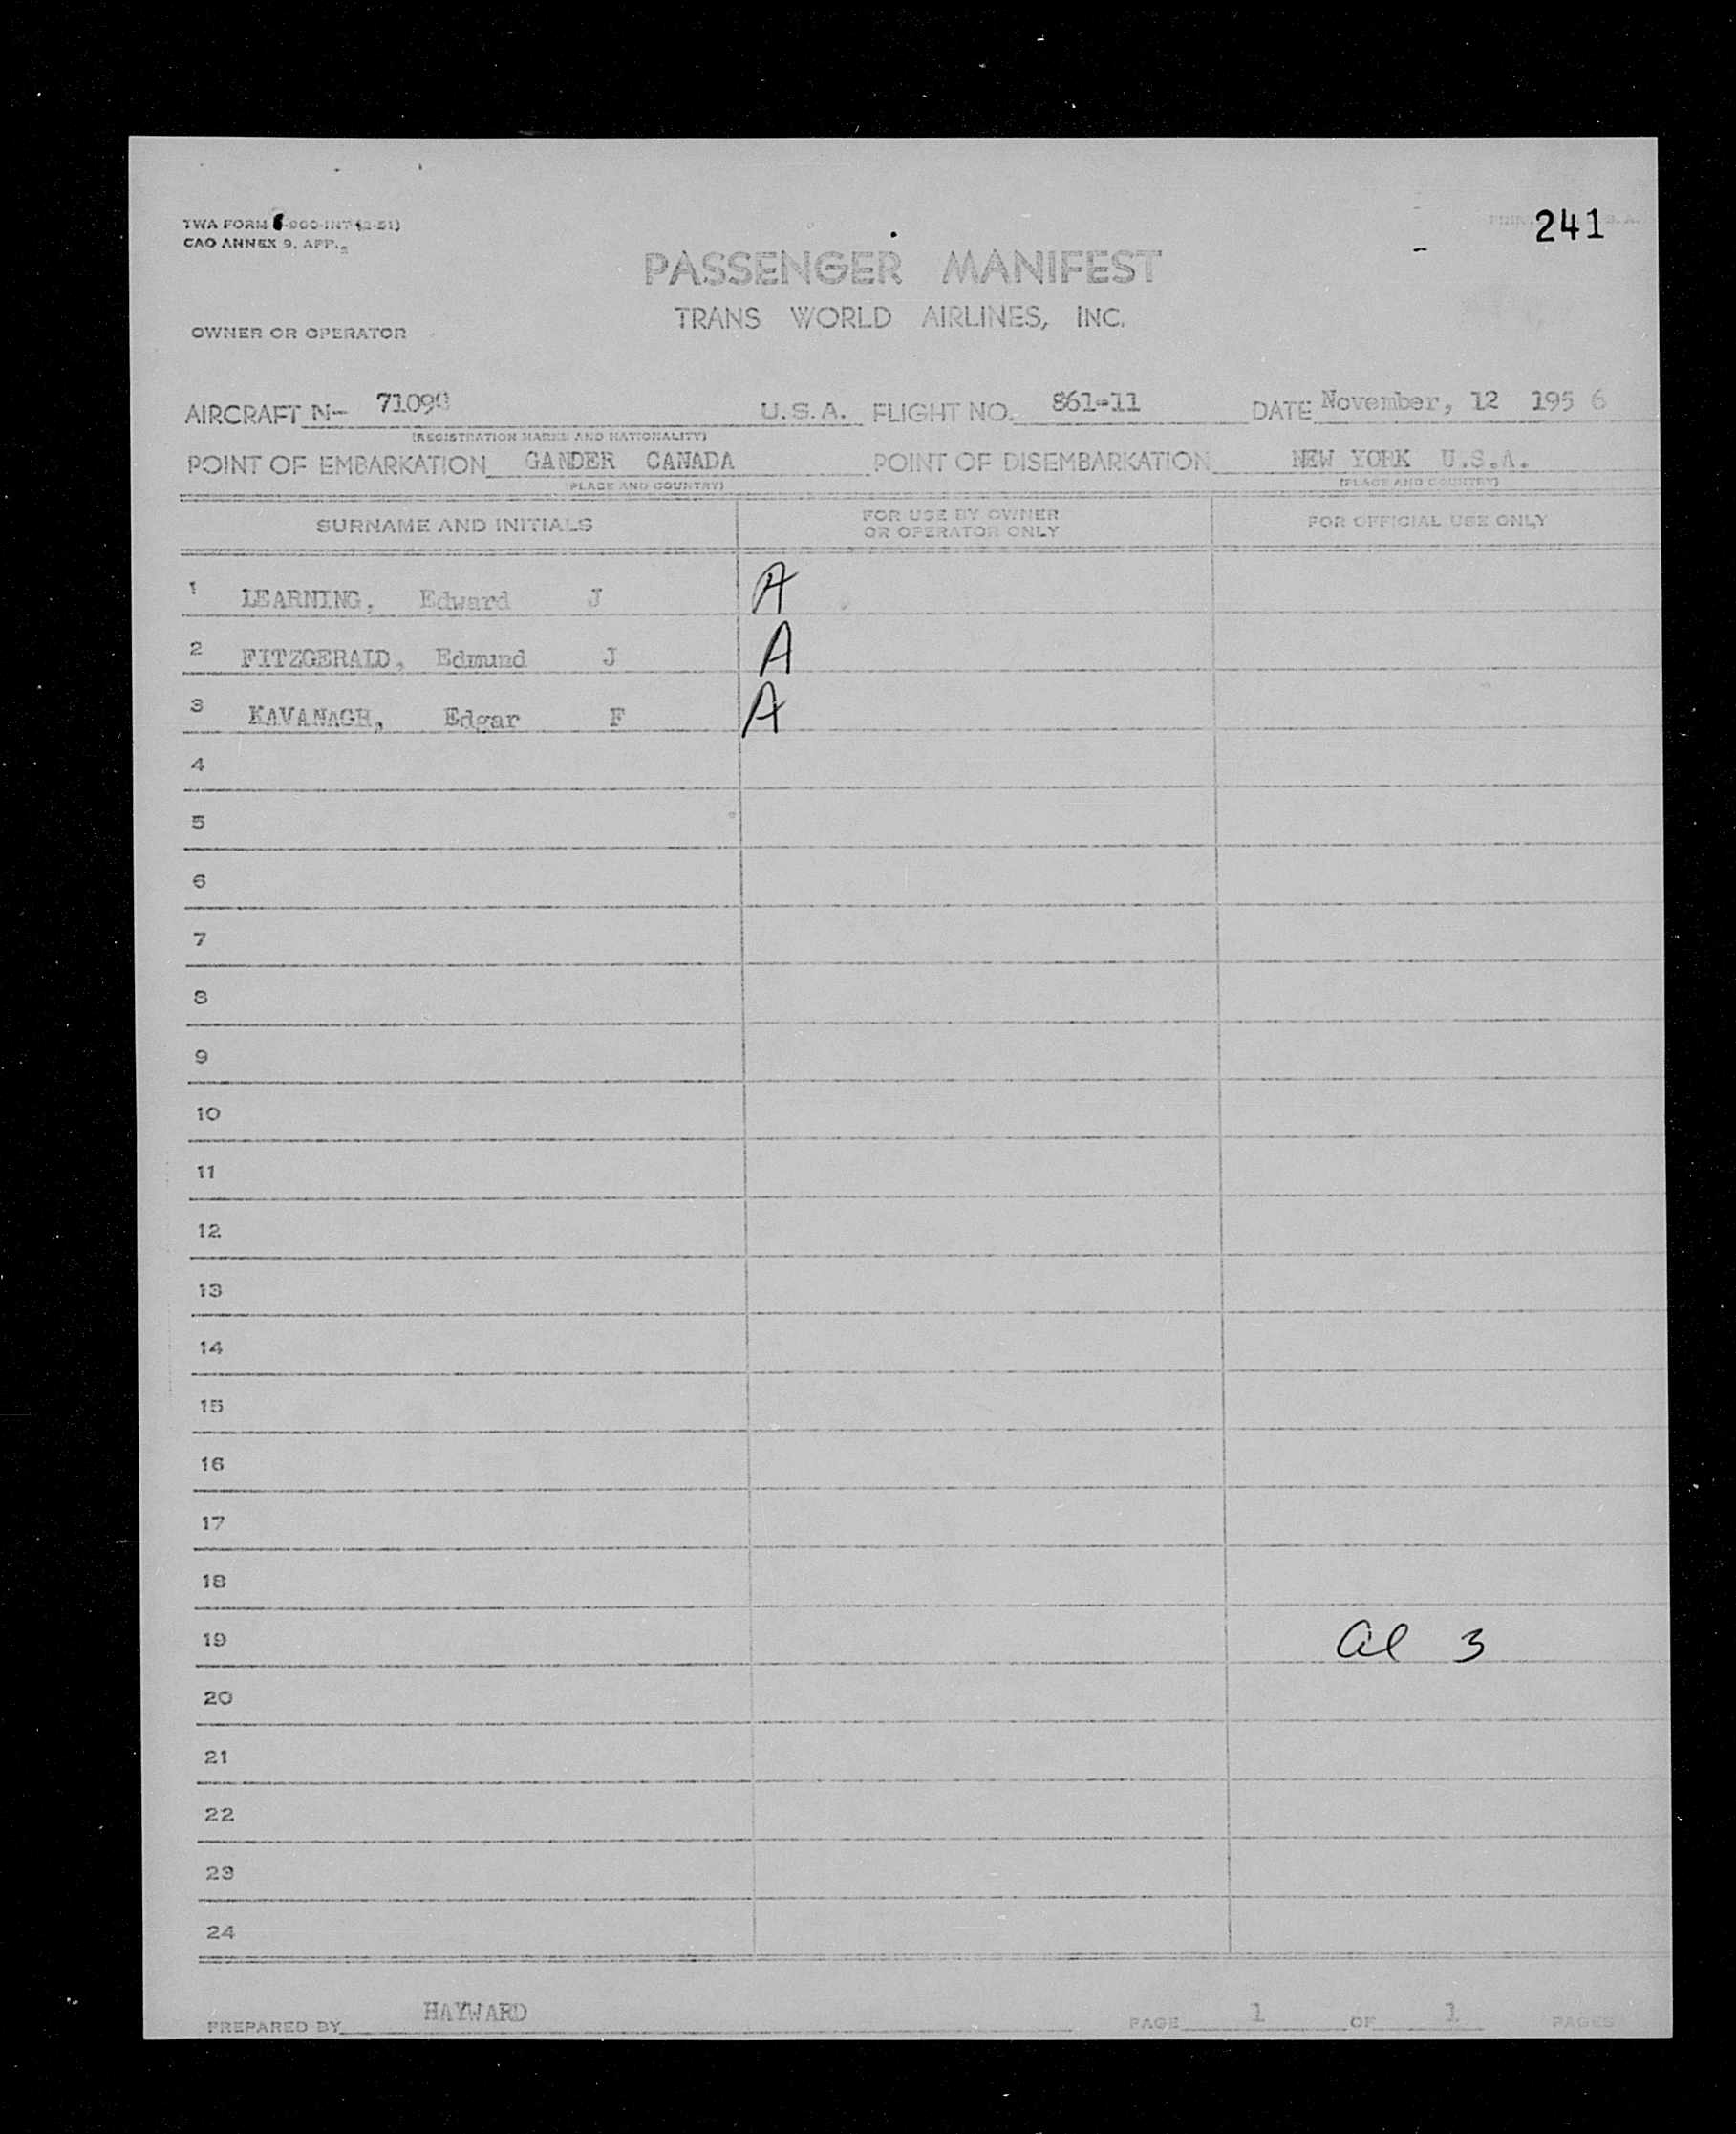 TWA FORM -900-INT (2-51)
CAO ANNEX 9, APP.
241
PASSENGER MANIFEST
TRANS WORLD AIRLINES, INC.
OWNER OR OPERATOR
AIRCRAFT N- 71090 U.S.A. FLIGHT NO. 861-11 DATE November, 12 195 6
(REGISTRATION MARKS AND NATIONALITY)
POINT OF EMBARKATION GANDER CANADA POINT OF DISEMBARKATION NEW YORK U.S.A.
(PLACE AND COUNTRY) (PLACE AND COUNTRY)
SURNAME AND INITIALS FOR USE BY OWNER OR OPERATOR ONLY FOR OFFICIAL USE ONLY
1 LEARNING, Edward J A
2 FITZGERALD, Edmund J A
3 KAVANAGH, Edgar F A
4
5
6
7
8
9
10
11
12
13
14
15
16
17
18
19 al 3
20
21
22
23
24
PREPARED BY HAYWARD PAGE 1 OF 1 PAGES